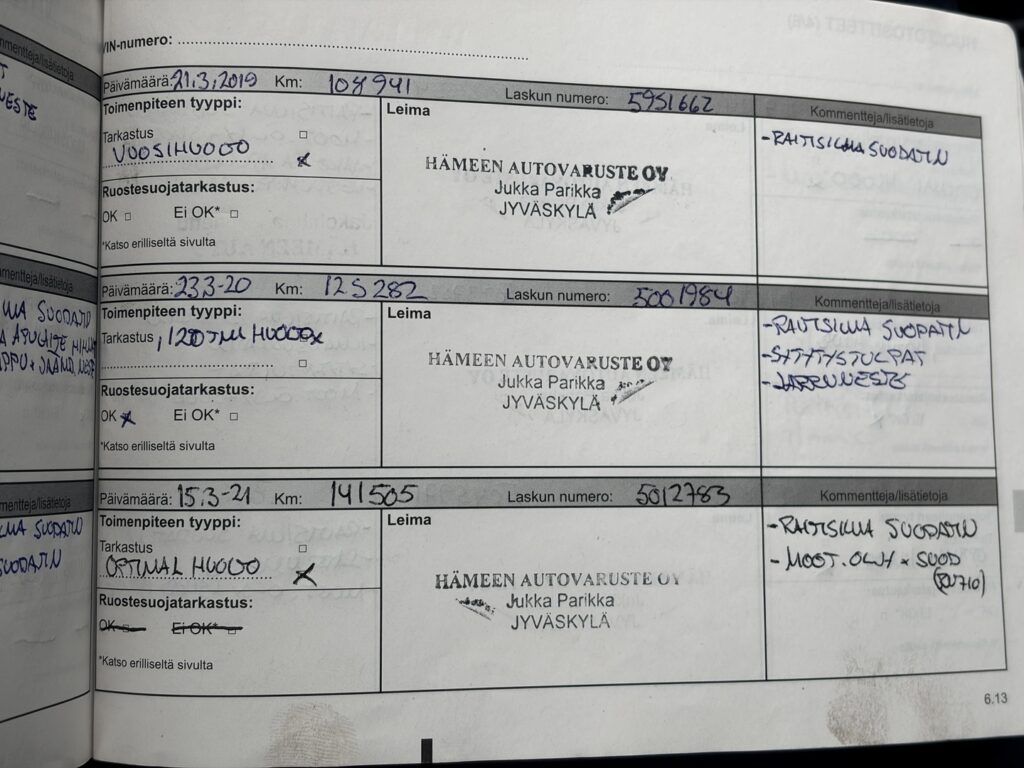 VIN-numero:
Päivämäärä: 21.3.2019 Km: 108941 Laskun numero: 5951662 Kommentteja/lisätietoja
Toimenpiteen tyyppi:
Leima
Tarkastus
VUOSIHUOLTO x
-RAITISILMASUODATIN
HÄMEEN AUTOVARUSTE OY
Jukka Parikka
JYVÄSKYLÄ
Ruostesuojatarkastus:
OK Ei OK*
*Katso erilliseltä sivulta
Päivämäärä: 23.3-20 Km: 125282 Laskun numero: 5001984 Kommentteja/lisätietoja
Toimenpiteen tyyppi:
Leima
Tarkastus, 120TKM HUOLTO x
-RAITISILMA SUODATIN
-SYTYTYSTULPAT
-JARRUNESTE
HÄMEEN AUTOVARUSTE OY
Jukka Parikka
JYVÄSKYLÄ
Ruostesuojatarkastus:
OK x Ei OK*
*Katso erilliseltä sivulta
Päivämäärä: 15.3-21 Km: 141505 Laskun numero: 5012783 Kommentteja/lisätietoja
Toimenpiteen tyyppi:
Leima
Tarkastus
OPTIMAL HUOLTO x
- RAITISILMA SUODATIN
- MOOT.ÖLJY + SUOD
HÄMEEN AUTOVARUSTE OY
Jukka Parikka
JYVÄSKYLÄ
Ruostesuojatarkastus:
OK Ei OK*
*Katso erilliseltä sivulta
6.13